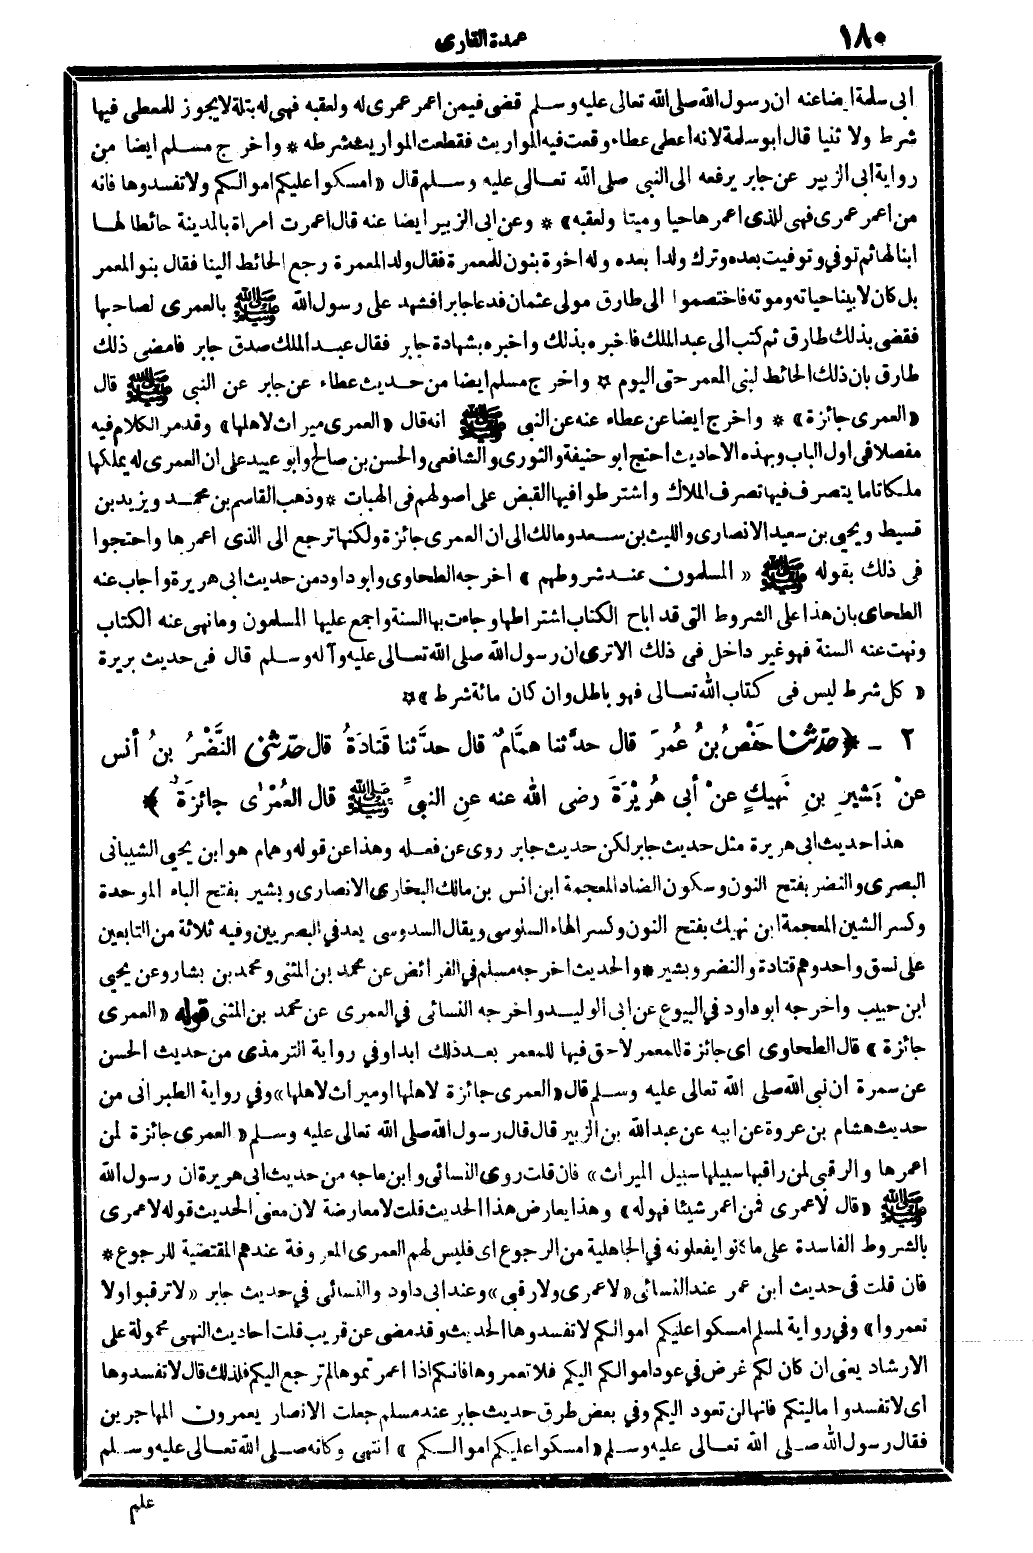 ١٨٠
عمدة القارى
ابى سلمة ايضا عنه ان رسول الله صلى الله تعالى عليه وسلم قضى فيمن اعمر عمرى له ولعقبه فهى له بتلة لا يجوز للمعطى فيها
شرط ولا ثنيا قال ابو سلمة لانه اعطى عطاء وقعت فيه المواريث فقطعت المواريث شرطه * واخرج مسلم ايضا من
رواية ابى الزبير عن جابر يرفعه الى النبى صلى الله تعالى عليه وسلم قال «امسكوا عليكم اموالكم ولا تفسدوها فانه
من اعمر عمرى فهى للذى اعمرها حيا وميتا ولعقبه» * وعن ابى الزبير ايضا عنه قال اعمرت امراة بالمدينة حائطا لها
ابنا لها ثم توفى وتوفيت بعده وترك ولدا بعده وله اخوة بنون للمعمرة فقال ولد المعمرة رجع الحائط الينا فقال بنو المعمر
بل كان لابينا حياته وموته فاختصموا الى طارق مولى عثمان فدعا جابرا فشهد على رسول الله ﷺ بالعمرى لصاحبها
فقضى بذلك طارق ثم كتب الى عبد الملك فاخبره بذلك واخبره بشهادة جابر فقال عبد الملك صدق جابر فامضى ذلك
طارق بان ذلك الحائط لبنى المعمر حتى اليوم * واخرج مسلم ايضا من حديث عطاء عن جابر عن النبى ﷺ قال
«العمرى جائزة» * واخرج ايضا عن عطاء عنه عن النبى ﷺ انه قال «العمرى ميراث لاهلها» وقد مر الكلام فيه
مفصلا فى اول الباب وبهذه الاحاديث احتج ابو حنيفة والثورى والشافعى والحسن بن صالح وابو عبيد على ان العمرى له يملكها
ملكا تاما يتصرف فيها تصرف الملاك واشترطوا فيها القبض على اصولهم فى الهبات * وذهب القاسم بن محمد ويزيد بن
قسيط ويحيى بن سعيد الانصارى والليث بن سعد ومالك الى ان العمرى جائزة ولكنها ترجع الى الذى اعمرها واحتجوا
فى ذلك بقوله ﷺ «المسلمون عند شروطهم» اخرجه الطحاوى وابو داود من حديث ابى هريرة واجاب عنه
الطحاى بان هذا على الشروط التى قد اباح الكتاب اشتراطها وجاءت بها السنة واجمع عليها المسلمون وما نهى عنه الكتاب
ونهت عنه السنة فهو غير داخل فى ذلك الا ترى ان رسول الله صلى الله تعالى عليه وآله وسلم قال فى حديث بريرة
«كل شرط ليس فى كتاب الله تعالى فهو باطل وان كان مائة شرط» *
٢ ـ ﴿حدثنا حَفْصُ بنُ عُمَرَ قال حدَّثنا همَّامٌ قال حدَّثنا قَتادَةُ قال حدّثنى النَّضْرُ بنُ أنس
عنْ بَشيرِ بنِ نَهيكٍ عنْ أبى هُرَيْرَةَ رضى الله عنه عنِ النبىِّ ﷺ قال العُمْرَى جائزَةٌ﴾
هذا حديث ابى هريرة مثل حديث جابر لكن حديث جابر روى عن فعله وهذا عن قوله وهمام هو ابن يحيى الشيبانى
البصرى والنضر بفتح النون وسكون الضاد المعجمة ابن انس بن مالك البخارى الانصارى وبشير بفتح الباء الموحدة
وكسر الشين المعجمة ابن نهيك بفتح النون وكسر الهاء السلوسى ويقال السدوسى يعد فى البصريين وفيه ثلاثة من التابعين
على نسق واحد وهم قتادة والنضر وبشير * والحديث اخرجه مسلم فى الفرائض عن محمد بن المثنى ومحمد بن بشار وعن يحيى
ابن حبيب واخرجه ابو داود فى البيوع عن ابى الوليد واخرجه النسائى فى العمرى عن محمد بن المثنى قوله «العمرى
جائزة» قال الطحاوى اى جائزة للمعمر لا حق فيها للمعمر بعد ذلك ابدا وفى رواية الترمذى من حديث الحسن
عن سمرة ان نبى الله صلى الله تعالى عليه وسلم قال «العمرى جائزة لاهلها او ميراث لاهلها» وفى رواية الطبرانى من
حديث هشام بن عروة عن ابيه عن عبد الله بن الزبير قال قال رسول الله صلى الله تعالى عليه وسلم «العمرى جائزة لمن
اعمرها والرقبى لمن راقبها سبيلها سبيل الميراث» فان قلت روى النسائى وابن ماجه من حديث ابى هريرة ان رسول الله
ﷺ «قال لا عمرى فمن اعمر شيئا فهو له» وهذا يعارض هذا الحديث قلت لا معارضة لان معنى الحديث قوله لا عمرى
بالشروط الفاسدة على ما كانوا يفعلونه فى الجاهلية من الرجوع اى فليس لهم العمرى المعروفة عندهم المقتضية للرجوع *
فان قلت فى حديث ابن عمر عند النسائى «لا عمرى ولا رقبى» وعند ابى داود والنسائى فى حديث جابر «لا ترقبوا ولا
تعمروا» وفى رواية لمسلم امسكوا عليكم اموالكم لا تفسدوها الحديث وقد مضى عن قريب قلت احاديث النهى محمولة على
الارشاد يعنى ان كان لكم غرض فى عود اموالكم اليكم فلا تعمروها فانكم اذا اعمرتموها لم ترجع اليكم فلذلك قال لا تفسدوها
اى لا تفسدوا ماليتكم فانها لن تعود اليكم وفى بعض طرق حديث جابر عند مسلم جعلت الانصار يعمرون المهاجرين
فقال رسول الله صلى الله تعالى عليه وسلم «امسكوا عليكم اموالكم» انتهى وكانه صلى الله تعالى عليه وسلم
علم